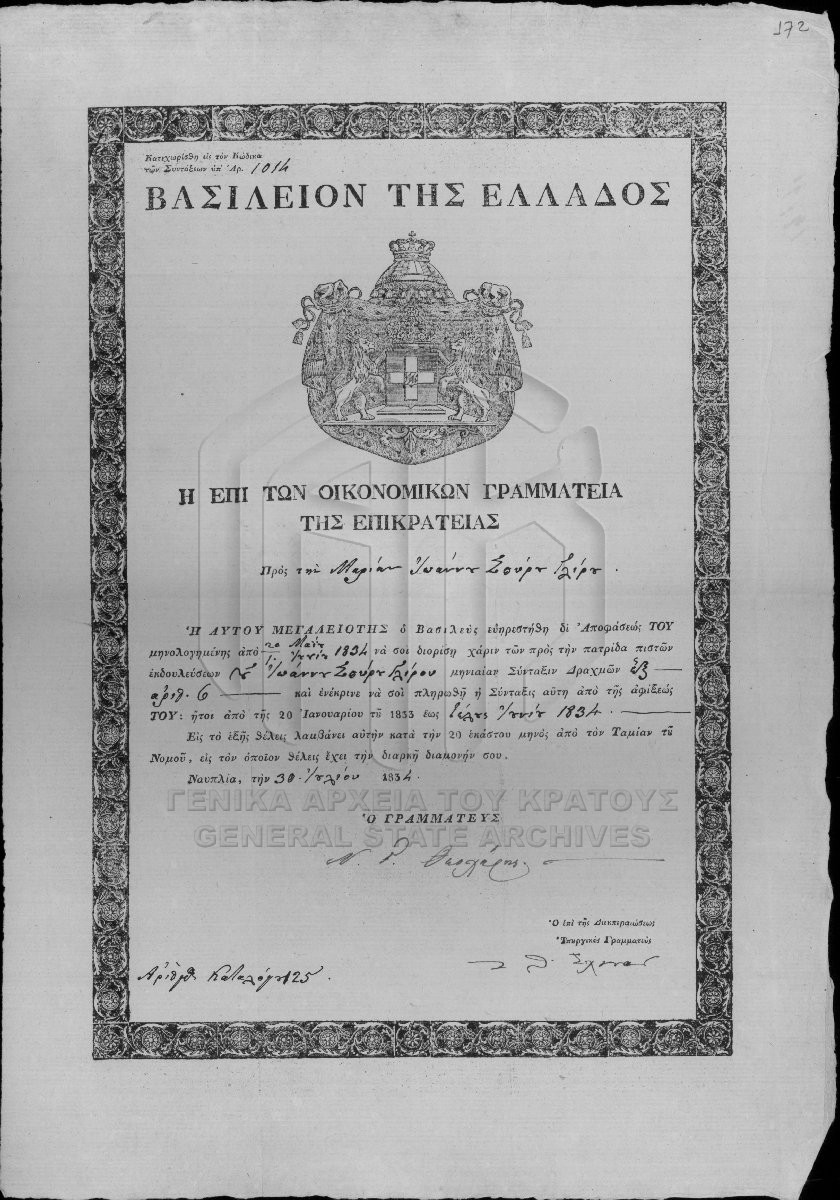 172
Κατεχωρίσθη εἰς τὸν Κώδικα
τῶν Συντάξεων ὑπ' Ἀρ. 1014
ΒΑΣΙΛΕΙΟΝ ΤΗΣ ΕΛΛΑΔΟΣ
Η ΕΠΙ ΤΩΝ ΟΙΚΟΝΟΜΙΚΩΝ ΓΡΑΜΜΑΤΕΙΑ
ΤΗΣ ΕΠΙΚΡΑΤΕΙΑΣ
Πρὸς τὴν Μαρίαν Ἰωάννου
Ἡ ΑΥΤΟΥ ΜΕΓΑΛΕΙΟΤΗΣ ὁ Βασιλεὺς εὐηρεστήθη δι' Ἀποφάσεώς ΤΟΥ
μηνολογημένης ἀπὸ 20 Μαΐου 1834 νὰ σοὶ διορίσῃ χάριν τῶν πρὸς τὴν πατρίδα πιστῶν
ἐκδουλεύσεων Ἰωάννου μηνιαίαν Σύνταξιν Δραχμῶν ἓξ
ἀριθ. 6 καὶ ἐνέκρινε νὰ σοὶ πληρωθῇ ἡ Σύνταξις αὕτη ἀπὸ τῆς ἀφίξεώς
ΤΟΥ: ἤτοι ἀπὸ τῆς 20 Ἰανουαρίου τȣ͂ 1833 ἕως τέλους Ἰουνίου 1834.
Εἰς τὸ ἑξῆς θέλεις λαμβάνει αὐτὴν κατὰ τὴν 20 ἑκάστου μηνὸς ἀπὸ τὸν Ταμίαν τȣ͂
Νομοῦ, εἰς τὸν ὁποῖον θέλεις ἔχει τὴν διαρκῆ διαμονήν σου.
Ναυπλία, τὴν 30 Ἰουλίου 1834.
ΓΕΝΙΚΑ ΑΡΧΕΙΑ ΤΟΥ ΚΡΑΤΟΥΣ
Ὁ ΓΡΑΜΜΑΤΕΥΣ
GENERAL STATE ARCHIVES
Ὁ ἐπὶ τῆς Διεκπεραιώσεως
Ὑπουργικὸς Γραμματεὺς
Ἀριθ. Καταλόγου 125.